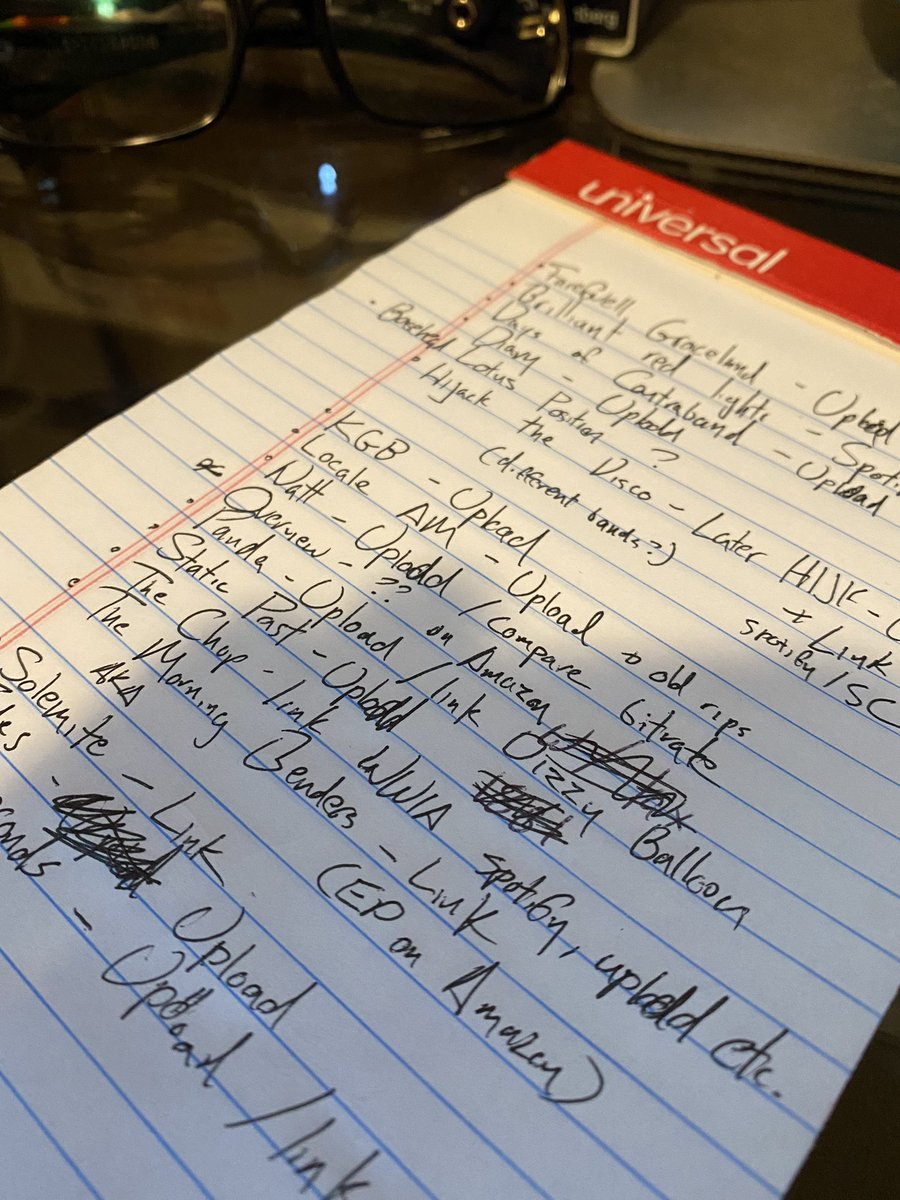 sberg
universal
Farewell, Graceland - Upload
Brilliant red lights - Spoti
Days of Contraband - Upload
Diary - Upload
Lotus Position ?
Hijack the Disco - Later HIJK -
(different bands?) + Link
spotify / SC
KGB - Upload
Locale AM - Upload + old rips
Natt - Upload / compare bitrate
Overview - ?? on Amazon
Panda - Upload / link Dizzy Balloon
Static Past - Upload
The Chop - link WWIA spotify, upload etc.
The Morning Benders - Link
(EP on Amazon)
AKA
Solemite - Link
- Upload
- Upload / link